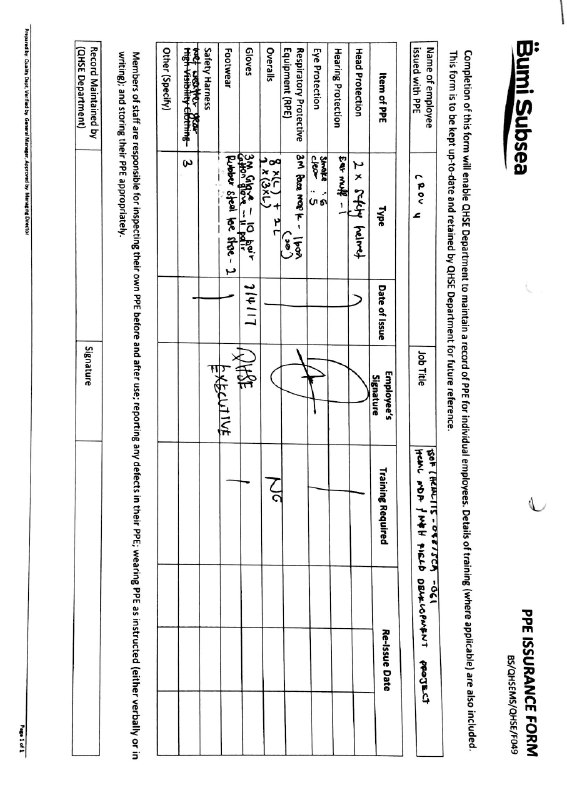 Bumi Subsea
PPE ISSURANCE FORM
BS/QHSEMS/QHSE/F049
Completion of this form will enable QHSE Department to maintain a record of PPE for individual employees. Details of training (where applicable) are also included.
This form is to be kept up-to-date and retained by QHSE Department for future reference.
Name of employee issued with PPE
CROV 4
Job Title
HCML MDA / MBH FIELD DEVELOPMENT PROJECT
Item of PPE Type Date of Issue Employee's Signature Training Required Re-Issue Date
Head Protection 2 x safety helmet
Hearing Protection Ear muff - 1
Eye Protection Smoke : 6
clear : 5
Respiratory Protective Equipment (RPE) 3M Face mask - 1 box
(20)
Overalls 8 x (L) + 2 L
1 x (3XL)
NO
Gloves 3M Glove - 10 pair
Cotton glove - 11 pair
7/4/17
QHSE
EXECUTIVE
Footwear Rubber steel toe shoe - 2
Safety Harness
wet weather gear
High Visibility Clothing 3
Other (Specify)
Members of staff are responsible for inspecting their own PPE before and after use; reporting any defects in their PPE; wearing PPE as instructed (either verbally or in
writing); and storing their PPE appropriately.
Record Maintained by
(QHSE Department)
Signature
Prepared by: Quality Dept, Verified by: General Manager, Approved by: Managing Director
Page 1 of 1